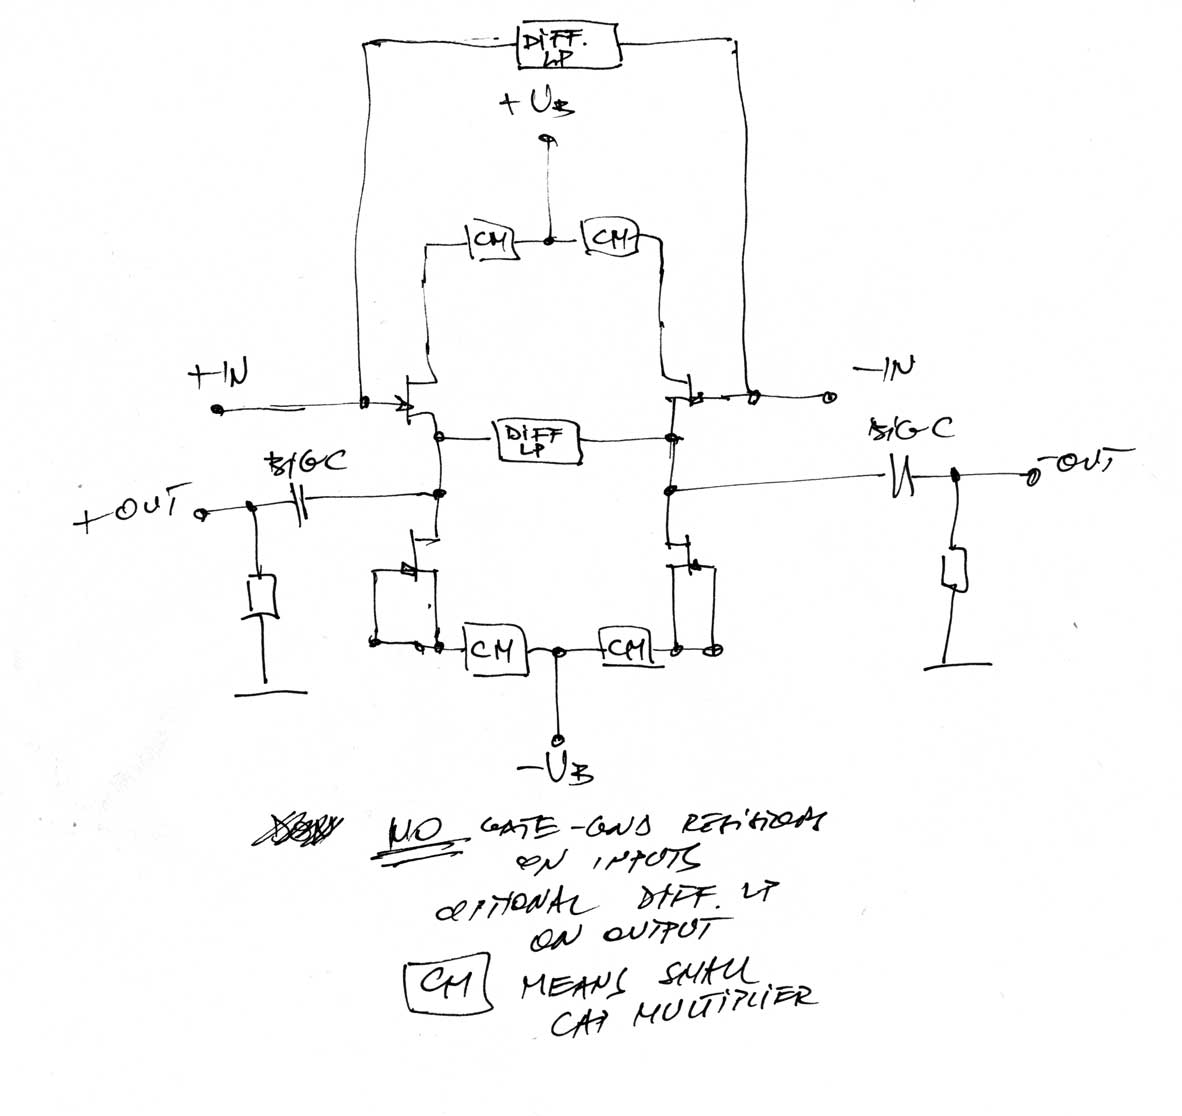 DIFF.
LP
+UB
CM
CM
+IN
-IN
DIFF
LP
BIG C
BIG C
+OUT
-OUT
CM
CM
-UB
NO GATE-GND RESISTORS
ON INPUTS
OPTIONAL DIFF. LP
ON OUTPUT
CM MEANS SMALL
CAP MULTIPLIER